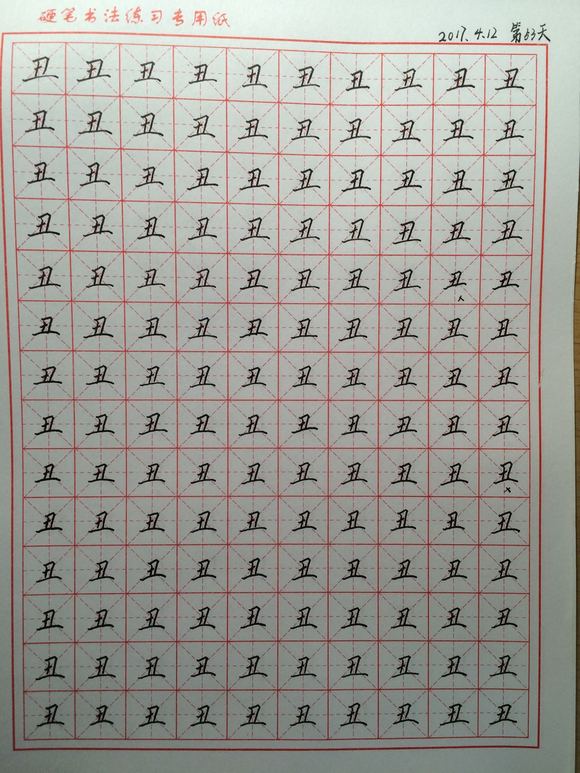 硬笔书法练习专用纸
2017.4.12 第53天
丑丑丑丑丑丑丑丑丑丑
丑丑丑丑丑丑丑丑丑丑
丑丑丑丑丑丑丑丑丑丑
丑丑丑丑丑丑丑丑丑丑
丑丑丑丑丑丑丑丑丑丑
丑丑丑丑丑丑丑丑丑丑
丑丑丑丑丑丑丑丑丑丑
丑丑丑丑丑丑丑丑丑丑
丑丑丑丑丑丑丑丑丑丑
丑丑丑丑丑丑丑丑丑丑
丑丑丑丑丑丑丑丑丑丑
丑丑丑丑丑丑丑丑丑丑
丑丑丑丑丑丑丑丑丑丑
丑丑丑丑丑丑丑丑丑丑